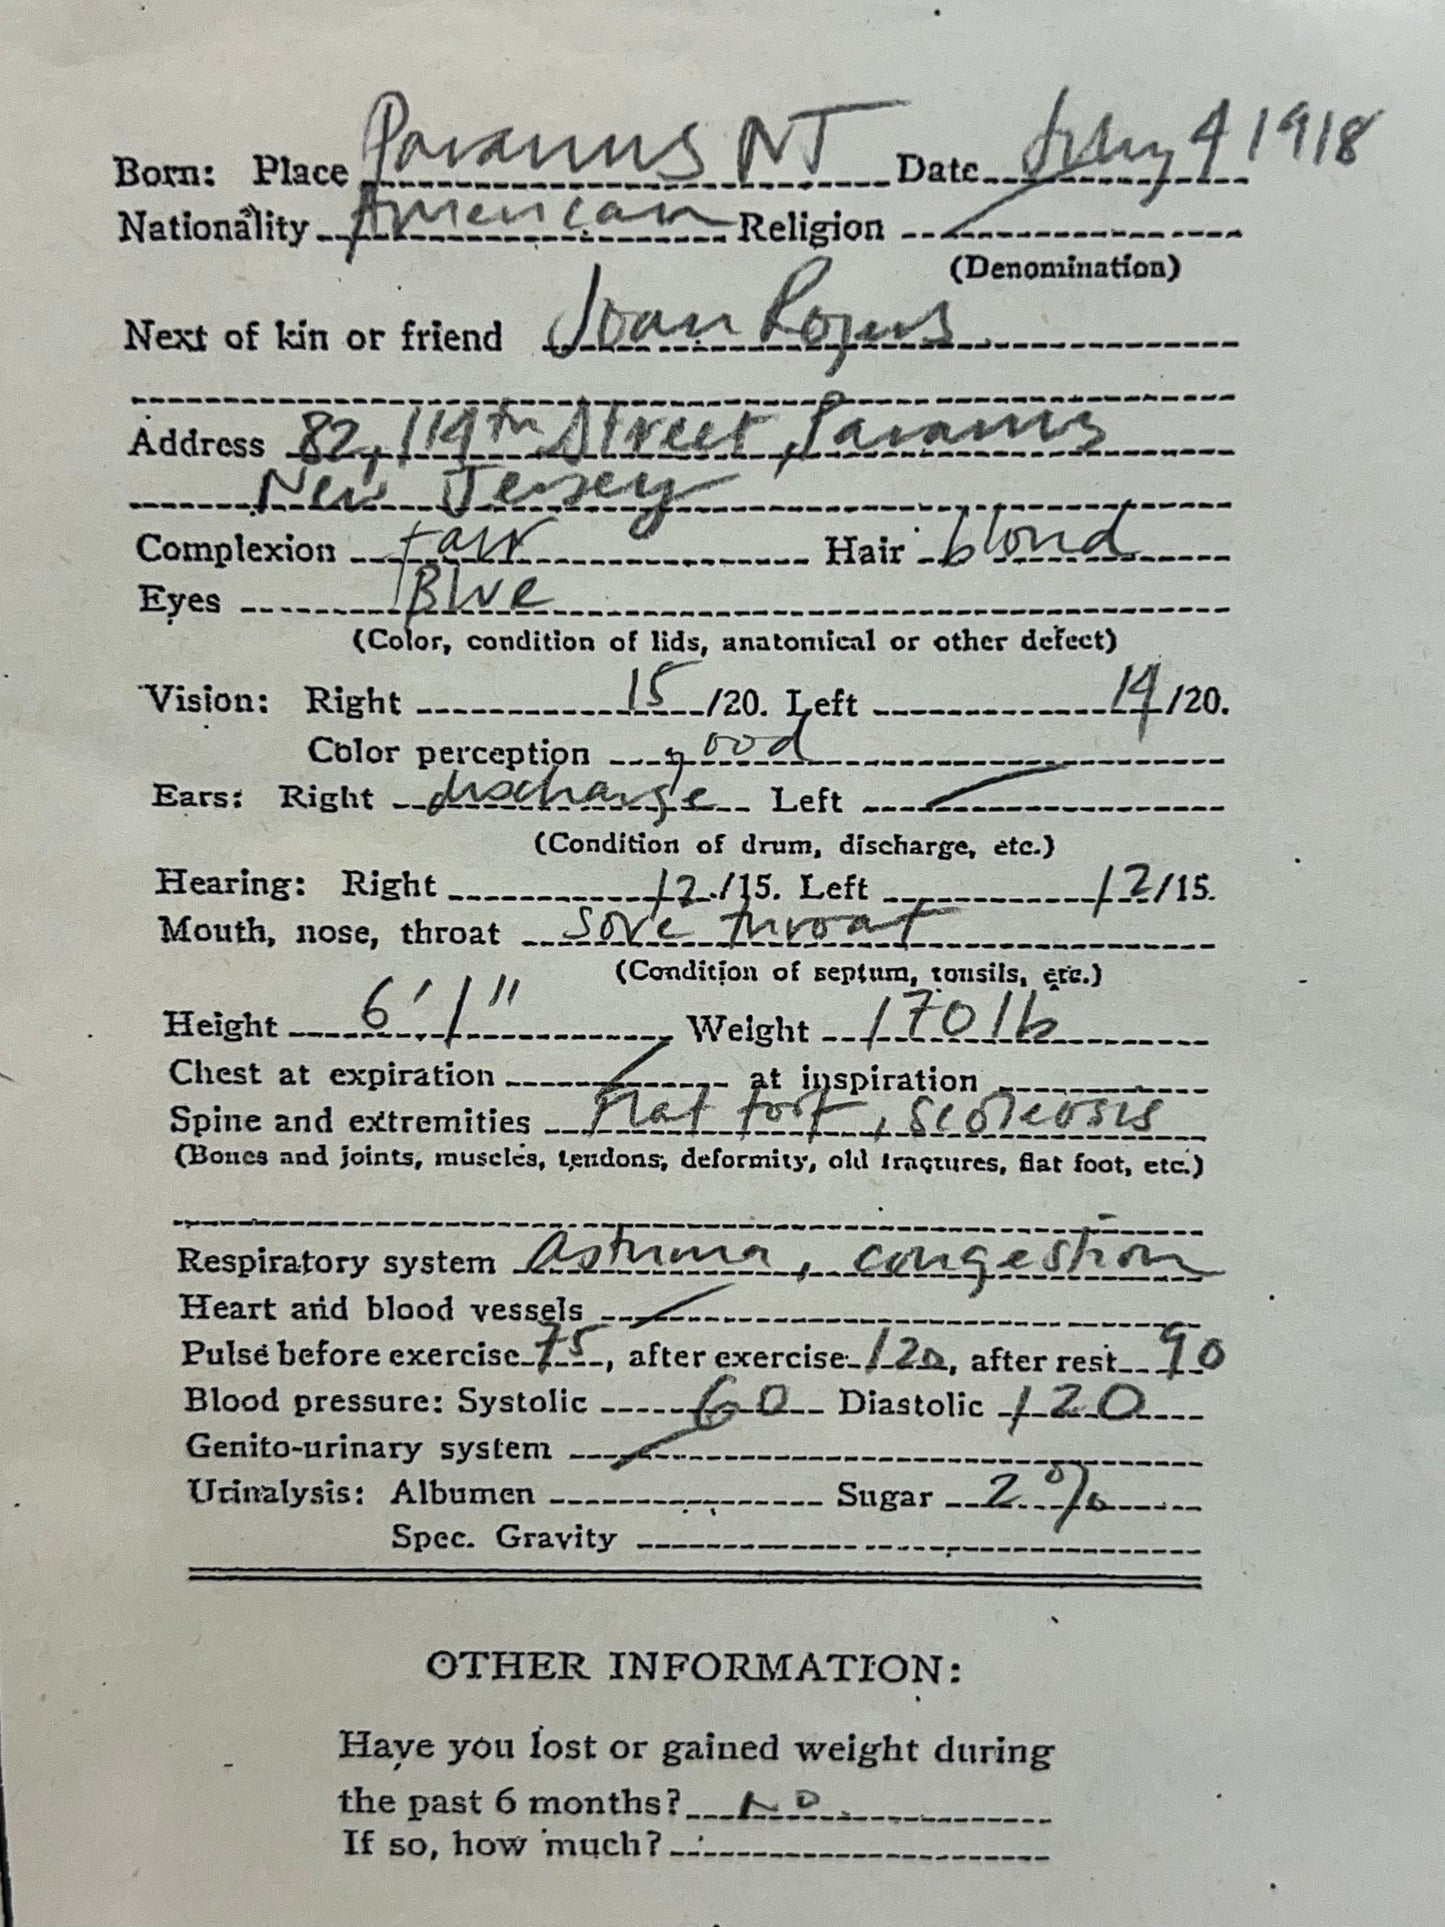 Born: Place Paramus NJ Date July 4 1918
Nationality American Religion
(Denomination)
Next of kin or friend Joan Rogers
Address 82, 114th Street, Paramus
New Jersey
Complexion Fair Hair blond
Eyes Blue
(Color, condition of lids, anatomical or other defect)
Vision: Right 15/20. Left 14/20.
Color perception good
Ears: Right discharge Left
(Condition of drum, discharge, etc.)
Hearing: Right 12/15. Left 12/15.
Mouth, nose, throat sore throat
(Condition of septum, tonsils, etc.)
Height 6' 1" Weight 170 lb
Chest at expiration at inspiration
Spine and extremities Flat foot, scoleosis
(Bones and joints, muscles, tendons, deformity, old fractures, flat foot, etc.)
Respiratory system Asthma, congestion
Heart and blood vessels
Pulse before exercise 75, after exercise 120, after rest 90
Blood pressure: Systolic 60 Diastolic 120
Genito-urinary system
Urinalysis: Albumen Sugar 2%
Spec. Gravity
OTHER INFORMATION:
Have you lost or gained weight during
the past 6 months? No.
If so, how much?